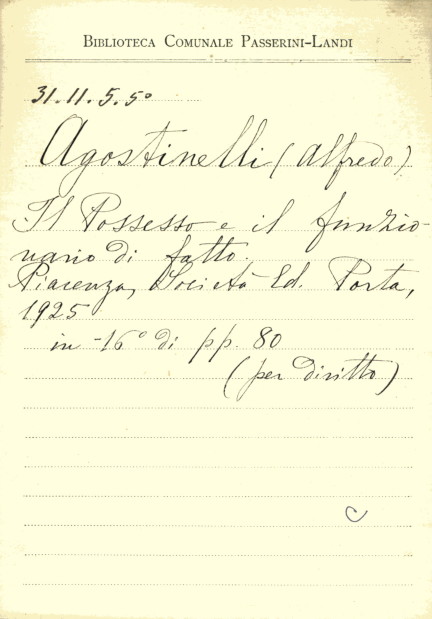 BIBLIOTECA COMUNALE PASSERINI-LANDI
31.11.5.5°
Agostinelli (Alfredo)
Il Possesso e il funzio-
nario di fatto.
Piacenza, Società Ed. Porta,
1925
in -16° di pp. 80
(per diritto)
C